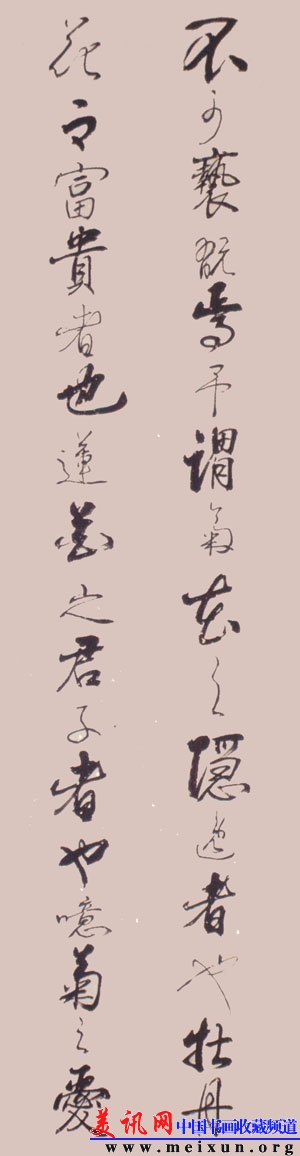 不可褻翫焉予謂菊花之隱逸者也牡丹
花之富貴者也蓮花之君子者也噫菊之愛
美讯网 中国书画收藏频道
www.meixun.org